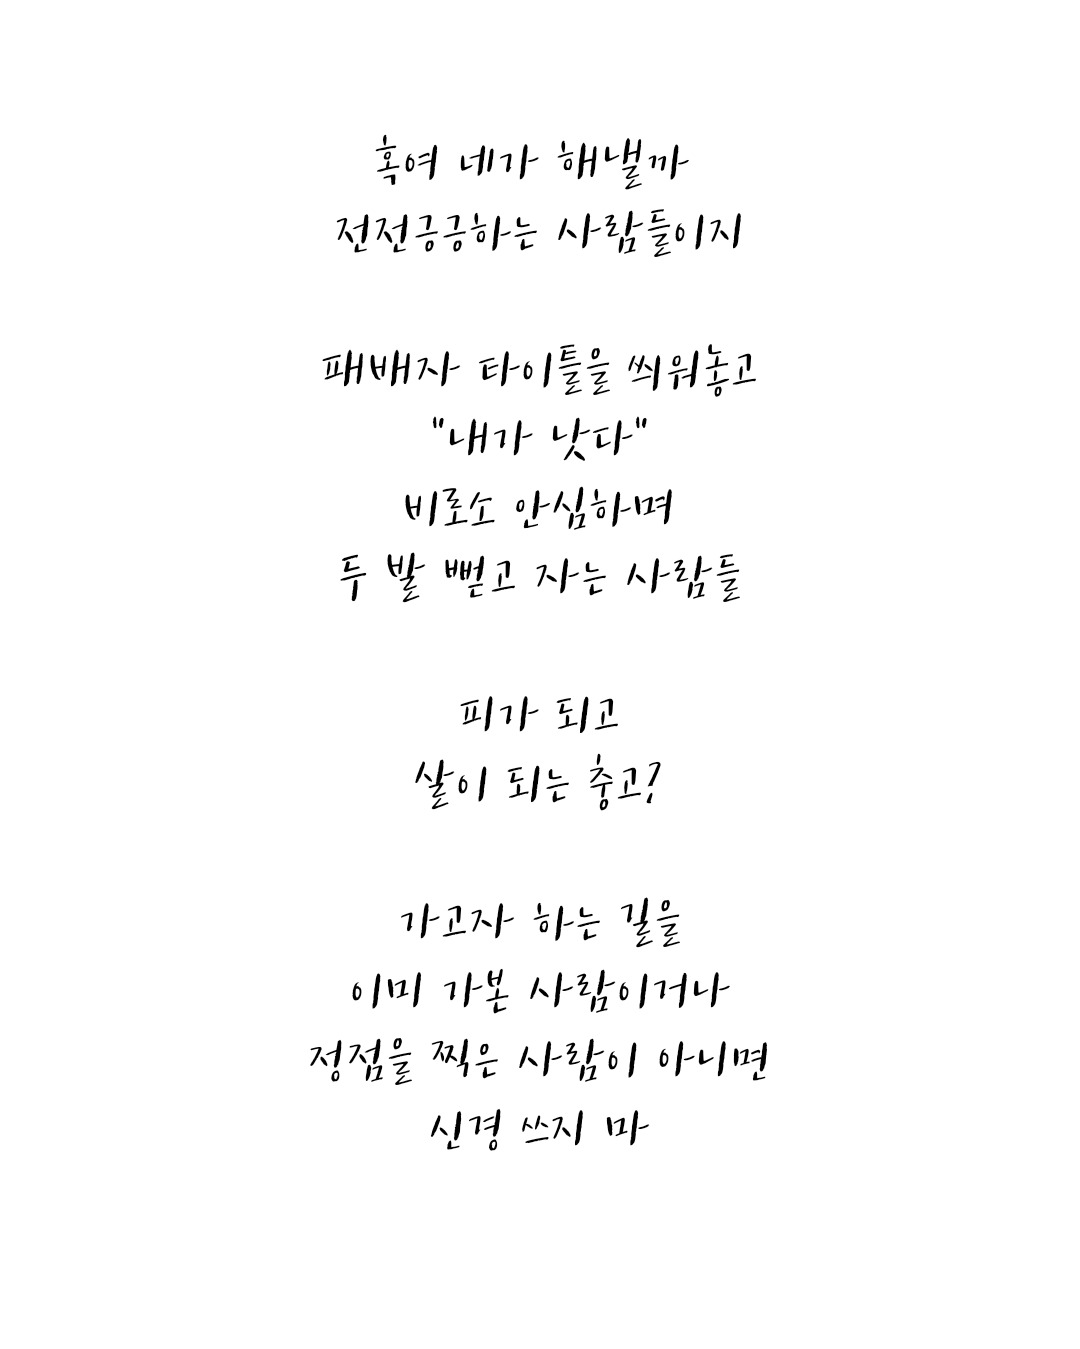 혹여 네가 해낼까
전전긍긍하는 사람들이지
패배자 타이틀을 씌워놓고
"내가 낫다"
비로소 안심하며
두 발 뻗고 자는 사람들
피가 되고
살이 되는 충고?
가고자 하는 길을
이미 가본 사람이거나
정점을 찍은 사람이 아니면
신경 쓰지 마